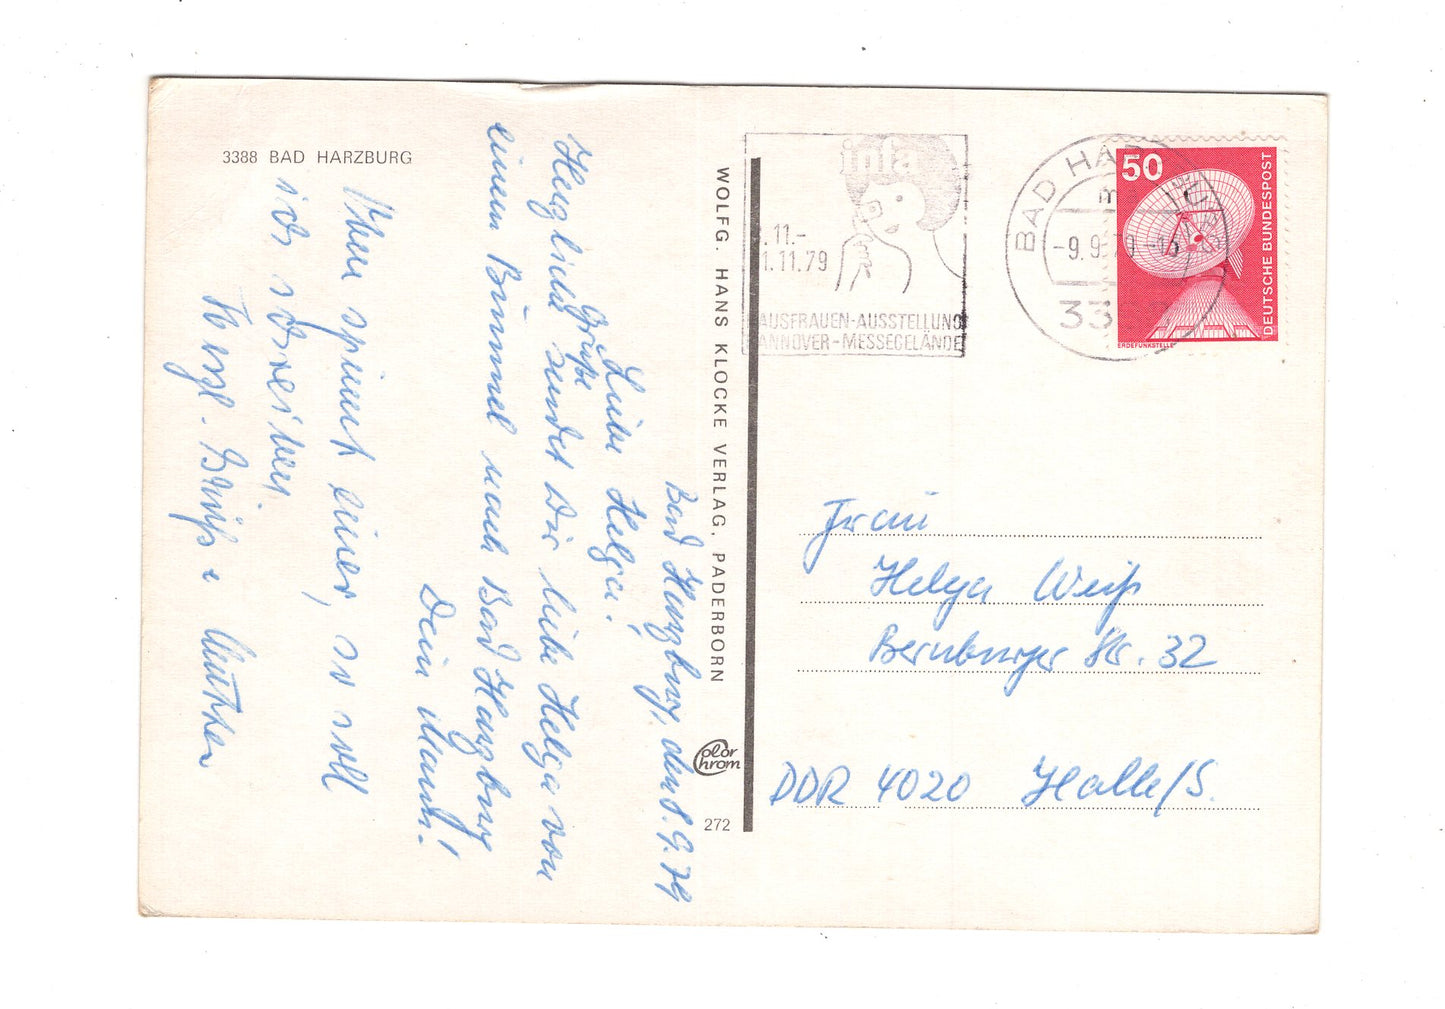 3388 BAD HARZBURG
Bad Harzburg, den 8.9.79
Liebe Helga!
Herzliche Grüße sendet Dir liebe Helga von
einem Bummel nach Bad Harzburg
Dein
spinnt einer, so soll
ich schreiben
Herzl. Grüße
WOLFG. HANS KLOCKE VERLAG, PADERBORN
Color Chrom
272
infa
.11.-
1.11.79
AUSFRAUEN-AUSSTELLUNG
ANNOVER-MESSEGELÄNDE
BAD HARZBURG
-9.9.79-15
33
50
DEUTSCHE BUNDESPOST
ERDEFUNKSTELLE
Frau
Helga Weiß
Bernburger Str. 32
DDR 4020 Halle/S.